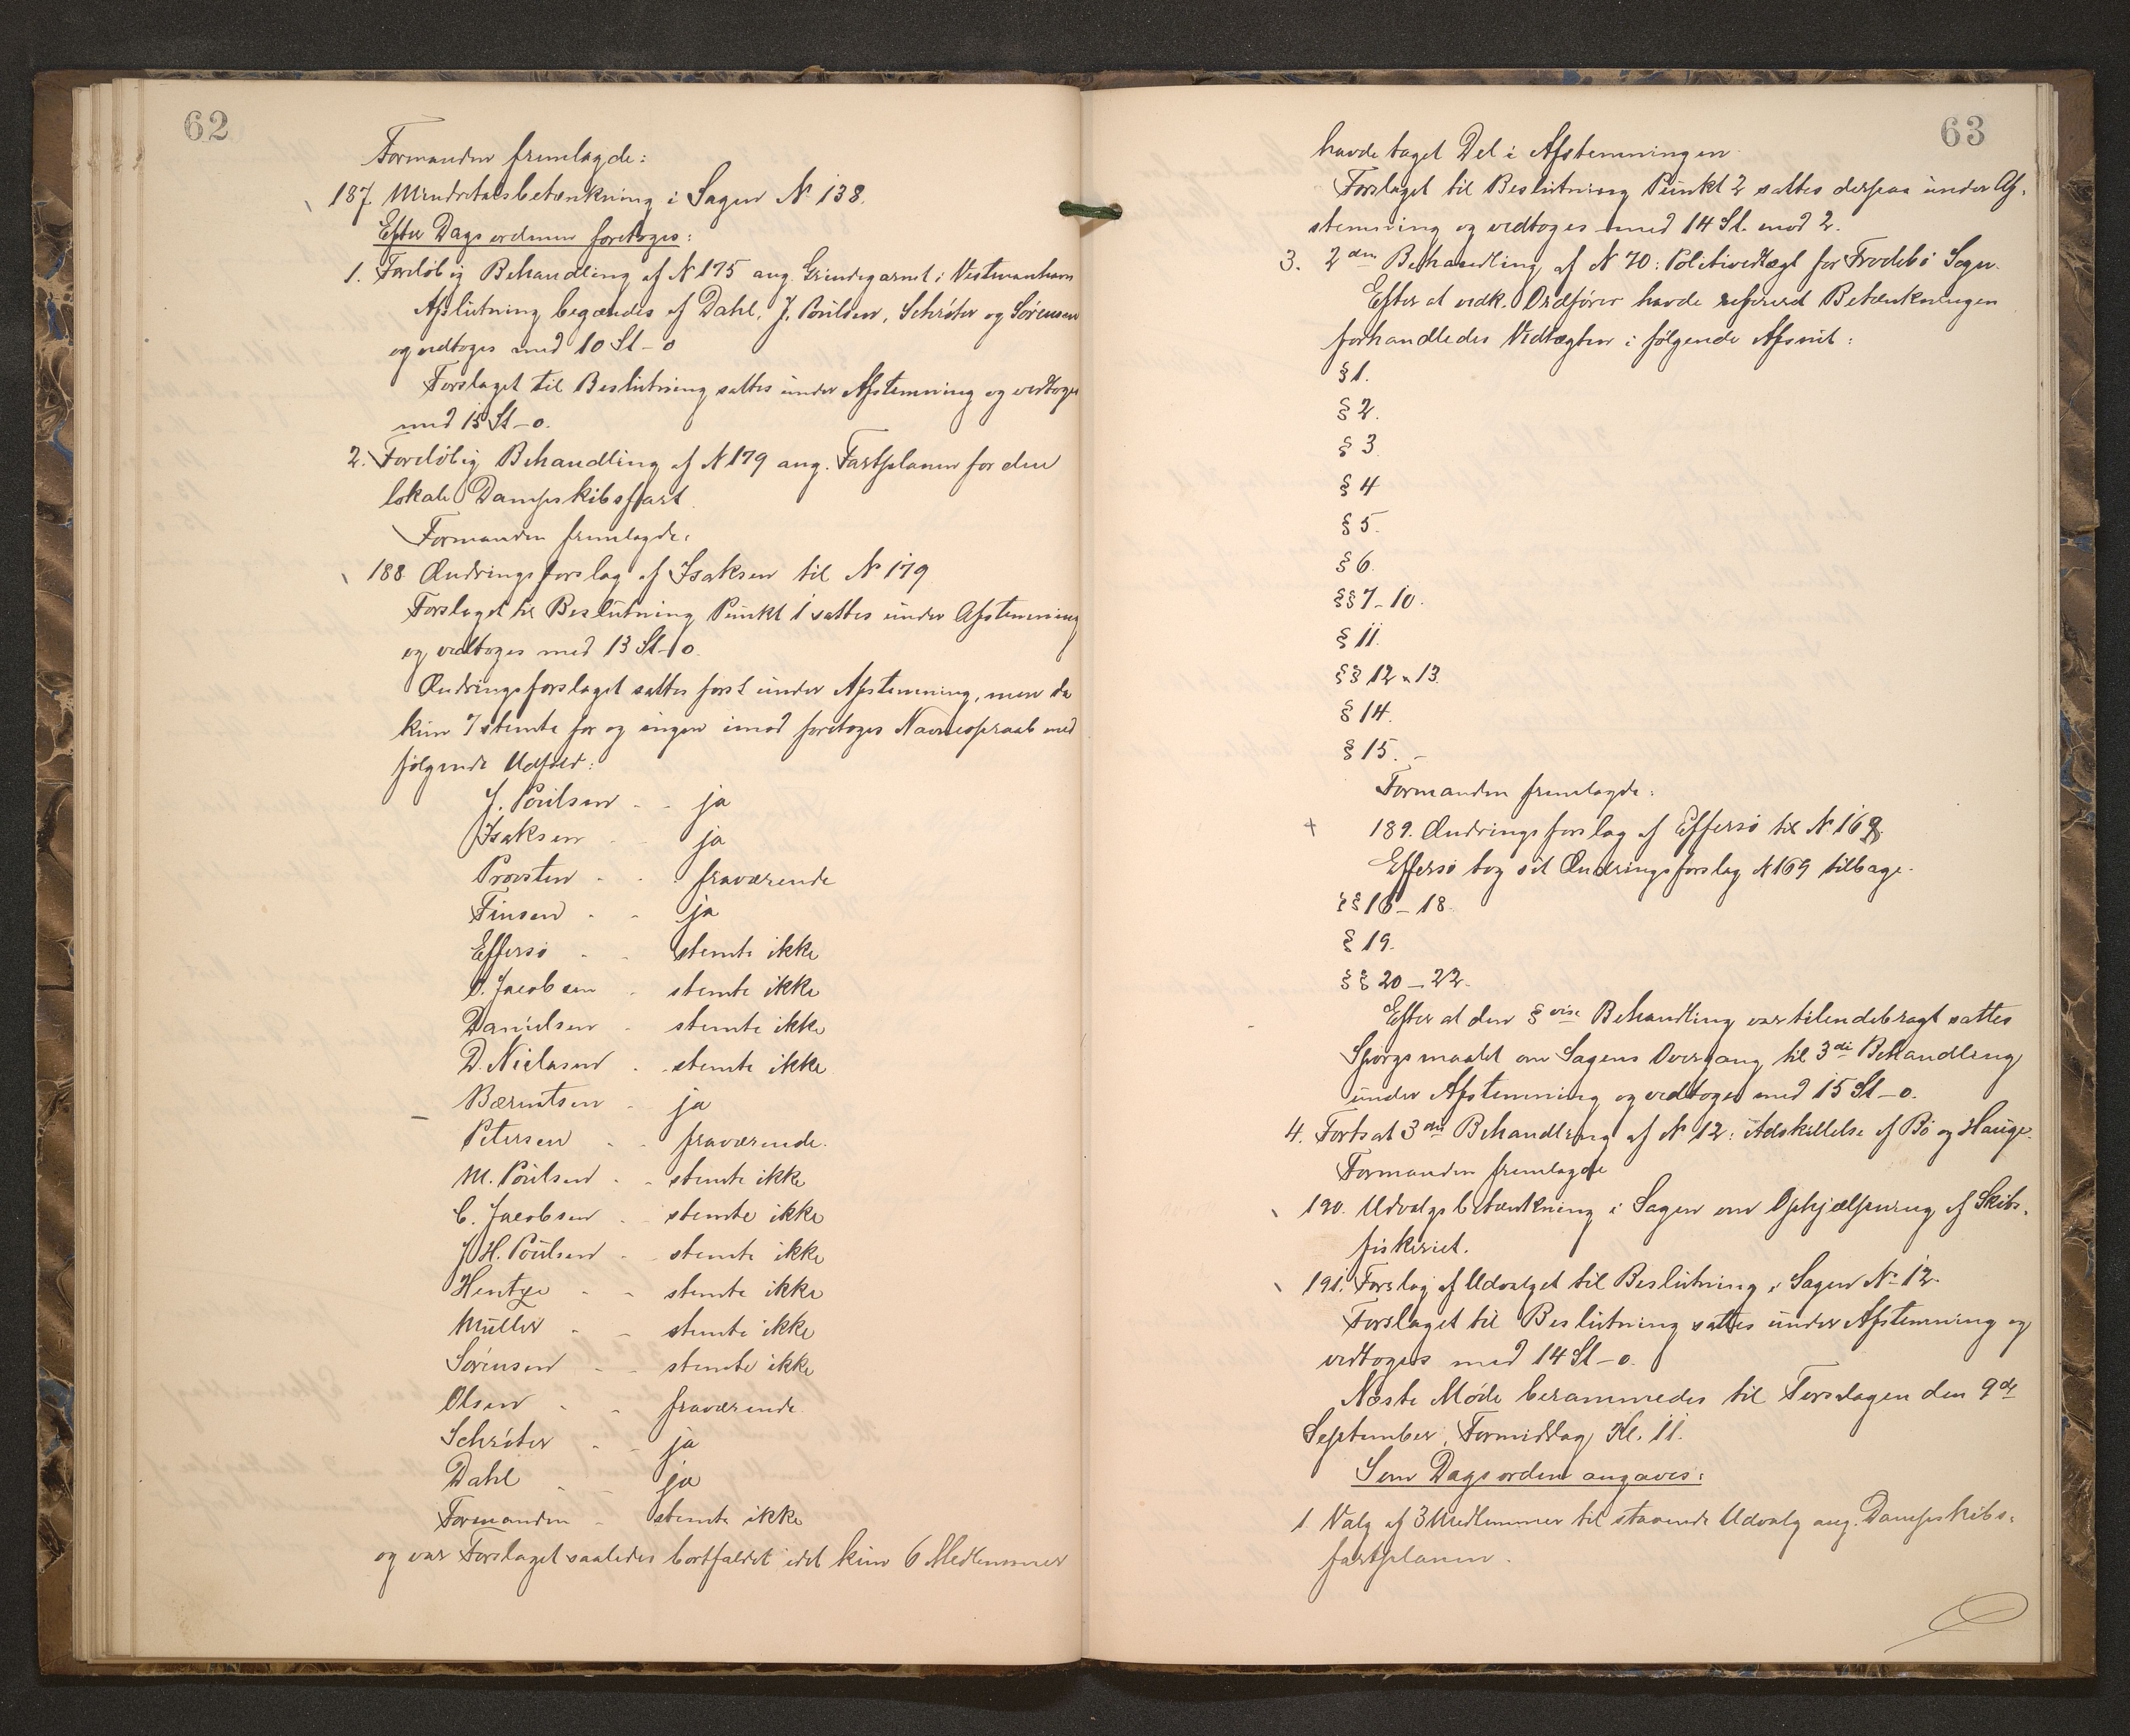 62
Formanden fremlagde:
187. Mindretalsbetænkning i Sagen N 138.
Efter Dagsordenen foretoges:
1. Foreløbig Behandling af N 175 ang. Grindegarnet i Vestmanhavn
Afslutning begæredes af Dahl, J. Poulsen, Schrøter og Sørensen
og vedtoges med 10 St - 0
Forslaget til Beslutning sattes under Afstemning og vedtoges
med 15 St - 0.
2. Foreløbig Behandling af N 179 ang. Fartplanen for den
lokale Dampskibsfart.
Formanden fremlagde:
188 Ændringsforslag af Isaksen til N 179
Forslaget til Beslutning Punkt 1 sattes under Afstemning
og vedtoges med 13 St - 0.
Ændringsforslaget sattes først under Afstemning, men da
kun 7 stemte for og ingen imod foretoges Navneopraab med
følgende Udfald:
J. Poulsen - - ja
Isaksen - - ja
Provsten - - fraværende
Finsen - - ja
Effersø - - stemte ikke
O. Jacobsen - stemte ikke
Danielsen - stemte ikke
D. Nielsen - stemte ikke
Bærentsen - ja
Petersen - - fraværende.
M. Poulsen - - stemte ikke
C. Jacobsen - stemte ikke
J.H. Poulsen - stemte ikke
Hentze - - stemte ikke
Müller - - stemte ikke
Sørensen - - stemte ikke
Olsen - - fraværende
Schrøter - - ja
Dahl - ja
Formanden - stemte ikke
og var Forslaget saaledes bortfaldet idet kun 6 Medlemmer
63
havde taget Del i Afstemningen.
Forslaget til Beslutning Punkt 2 sattes derpaa under Af-
stemning og vedtoges med 14 St. mod 2.
3. 2den Behandling af N 70: Politivedtægt for Frodebø Sogn.
Efter at vedk. Ordfører havde refereret Betænkningen
forhandledes Vedtægten i følgende Afsnit:
§ 1.
§ 2.
§ 3
§ 4
§ 5.
§ 6.
§§ 7-10.
§ 11.
§§ 12 & 13
§ 14.
§ 15. -
Formanden fremlagde:
189. Ændringsforslag af Effersø til N 169.
Effersø tog sit Ændringsforslag N 169 tilbage.
§§ 16 - 18.
§ 19.
§§ 20 - 22.
Efter at den § vise Behandling var tilendebragt sattes
Spørgsmaalet om Sagens Overgang til 3die Behandling
under Afstemning og vedtoges med 15 St - 0.
4. Fortsat 3die Behandling af N 12: Adskillelse af Bø og Hauge.
Formanden fremlagde
190. Udvalgsbetænkning i Sagen om Ophjælpning af Skibs-
fiskeriet.
191. Forslag af Udvalget til Beslutning i Sagen N 12.
Forslaget til Beslutning sattes under Afstemning og
vedtoges med 14 St - 0.
Næste Møde berammedes til Torsdagen den 9de
September, Formiddag Kl. 11.
Som Dagsorden angaves:
1. Valg af 3 Medlemmer til staaende Udvalg ang. Dampskibs-
fartplanen.